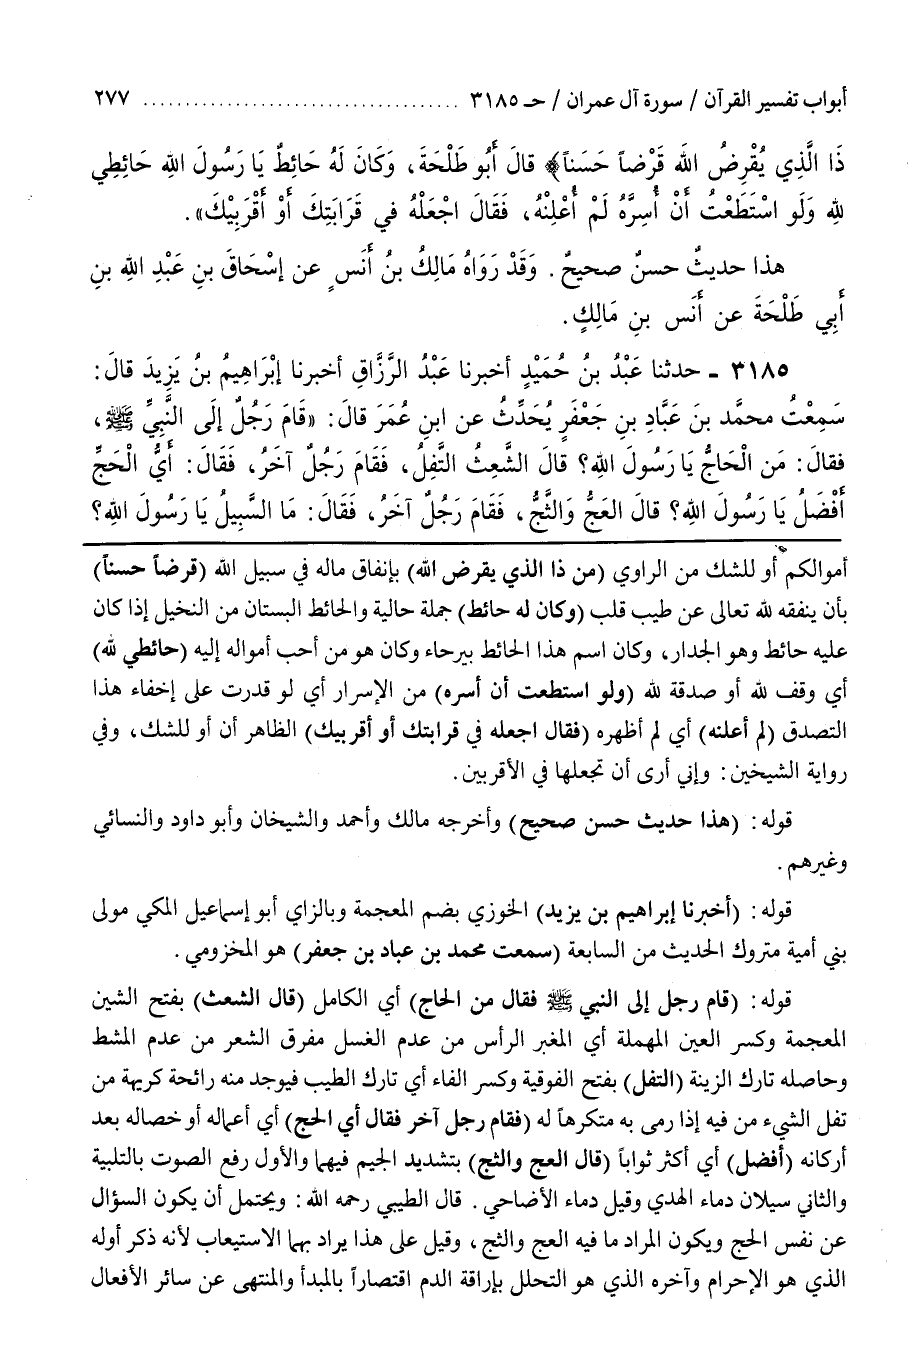 أبواب تفسير القرآن / سورة آل عمران / حـ ٣١٨٥ ...................................... ٢٧٧
ذَا الَّذِي يُقْرِضُ اللَّهَ قَرْضاً حَسَناً﴾ قالَ أَبُو طَلْحَةَ، وَكَانَ لَهُ حَائِطٌ يَا رَسُولَ اللهِ حَائِطِي
للهِ وَلَو اسْتَطَعْتُ أَنْ أُسِرَّهُ لَمْ أُعْلِنْهُ، فَقَالَ اجْعَلْهُ في قَرَابَتِكَ أَوْ أَقْرَبِيْكَ».
هذا حديثٌ حسنٌ صحيحٌ. وَقَدْ رَوَاهُ مَالِكُ بنُ أَنَسٍ عن إِسْحَاقَ بنِ عَبْدِ اللهِ بنِ
أَبِي طَلْحَةَ عن أَنَس بنِ مَالِكٍ.
٣١٨٥ ـ حدثنا عَبْدُ بنُ حُمَيْدٍ أخبرنا عَبْدُ الرَّزَّاقِ أخبرنا إِبْرَاهِيمُ بنُ يَزِيدَ قالَ:
سَمِعْتُ محمَّد بنَ عَبَّادِ بنِ جَعْفَرٍ يُحَدِّثُ عن ابنِ عُمَرَ قالَ: «قَامَ رَجُلٌ إلَى النَّبِيِّ ﷺ،
فقالَ: مَن الْحَاجُّ يَا رَسُولَ اللهِ؟ قالَ الشَّعِثُ التَّفِلُ، فَقَامَ رَجُلٌ آخَرُ، فَقَالَ: أَيُّ الْحَجِّ
أَفْضَلُ يَا رَسُولَ اللهِ؟ قالَ العَجُّ وَالثَّجُّ، فَقَامَ رَجُلٌ آخَرُ، فَقَالَ: مَا السَّبِيلُ يَا رَسُولَ اللهِ؟
أموالكم أو للشك من الراوي (من ذا الذي يقرض الله) بإنفاق ماله في سبيل الله (قرضاً حسناً)
بأن ينفقه لله تعالى عن طيب قلب (وكان له حائط) جملة حالية والحائط البستان من النخيل إذا كان
عليه حائط وهو الجدار، وكان اسم هذا الحائط بيرحاء وكان هو من أحب أمواله إليه (حائطي لله)
أي وقف لله أو صدقة لله (ولو استطعت أن أسره) من الإسرار أي لو قدرت على إخفاء هذا
التصدق (لم أعلنه) أي لم أظهره (فقال اجعله في قرابتك أو أقربيك) الظاهر أن أو للشك، وفي
رواية الشيخين: وإني أرى أن تجعلها في الأقربين.
قوله: (هذا حديث حسن صحيح) وأخرجه مالك وأحمد والشيخان وأبو داود والنسائي
وغيرهم.
قوله: (أخبرنا إبراهيم بن يزيد) الخوزي بضم المعجمة وبالزاي أبو إسماعيل المكي مولى
بني أمية متروك الحديث من السابعة (سمعت محمد بن عباد بن جعفر) هو المخزومي.
قوله: (قام رجل إلى النبي ﷺ فقال من الحاج) أي الكامل (قال الشعث) بفتح الشين
المعجمة وكسر العين المهملة أي المغبر الرأس من عدم الغسل مفرق الشعر من عدم المشط
وحاصله تارك الزينة (التفل) بفتح الفوقية وكسر الفاء أي تارك الطيب فيوجد منه رائحة كريهة من
تفل الشيء من فيه إذا رمى به متكرهاً له (فقام رجل آخر فقال أي الحج) أي أعماله أو خصاله بعد
أركانه (أفضل) أي أكثر ثواباً (قال العج والثج) بتشديد الجيم فيهما والأول رفع الصوت بالتلبية
والثاني سيلان دماء الهدي وقيل دماء الأضاحي. قال الطيبي رحمه الله: ويحتمل أن يكون السؤال
عن نفس الحج ويكون المراد ما فيه العج والثج، وقيل على هذا يراد بهما الاستيعاب لأنه ذكر أوله
الذي هو الإحرام وآخره الذي هو التحلل بإراقة الدم اقتصاراً بالمبدأ والمنتهى عن سائر الأفعال